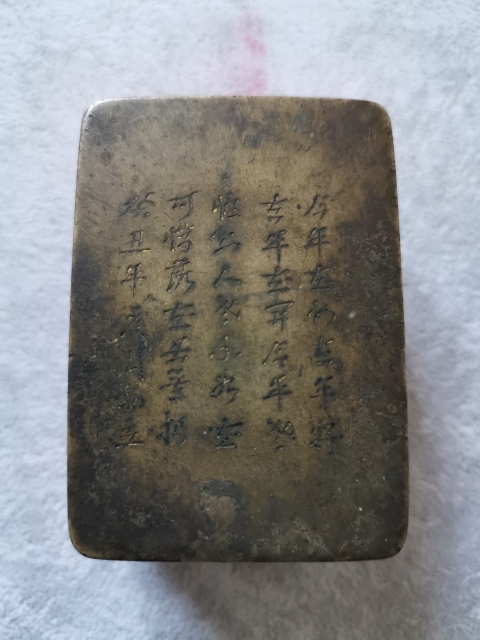 今年花似去年好
去年今年老
始知人老不如花
可惜落花君莫扫
癸丑年